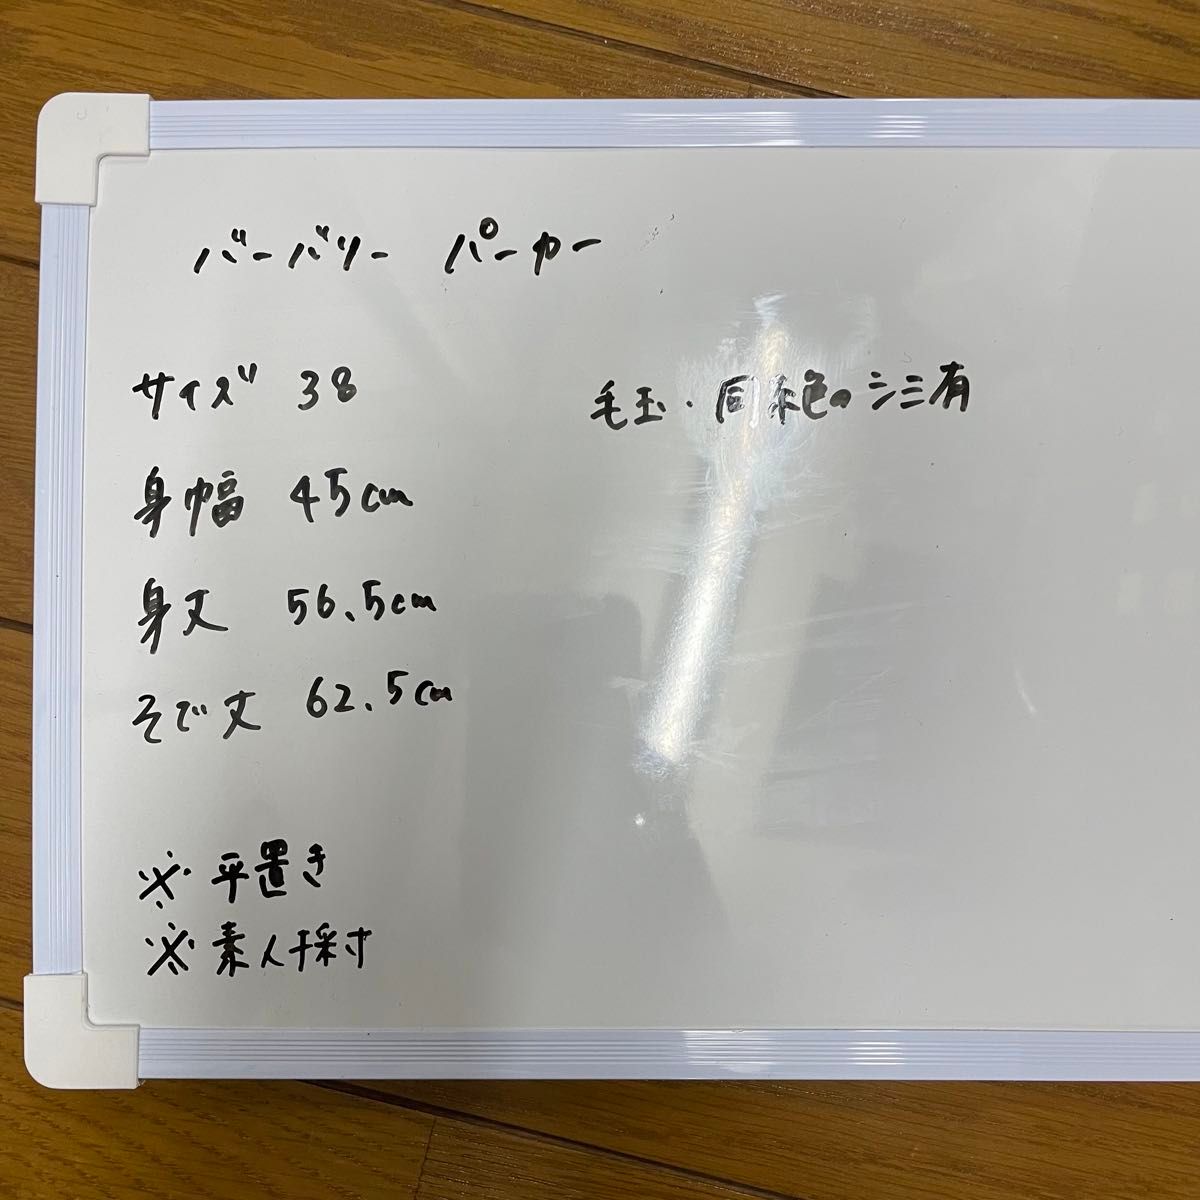 バーバリー パーカー
サイズ 38
毛玉・同系色のシミ有
身幅 45cm
身丈 56.5cm
そで丈 62.5cm
※平置き
※素人採寸